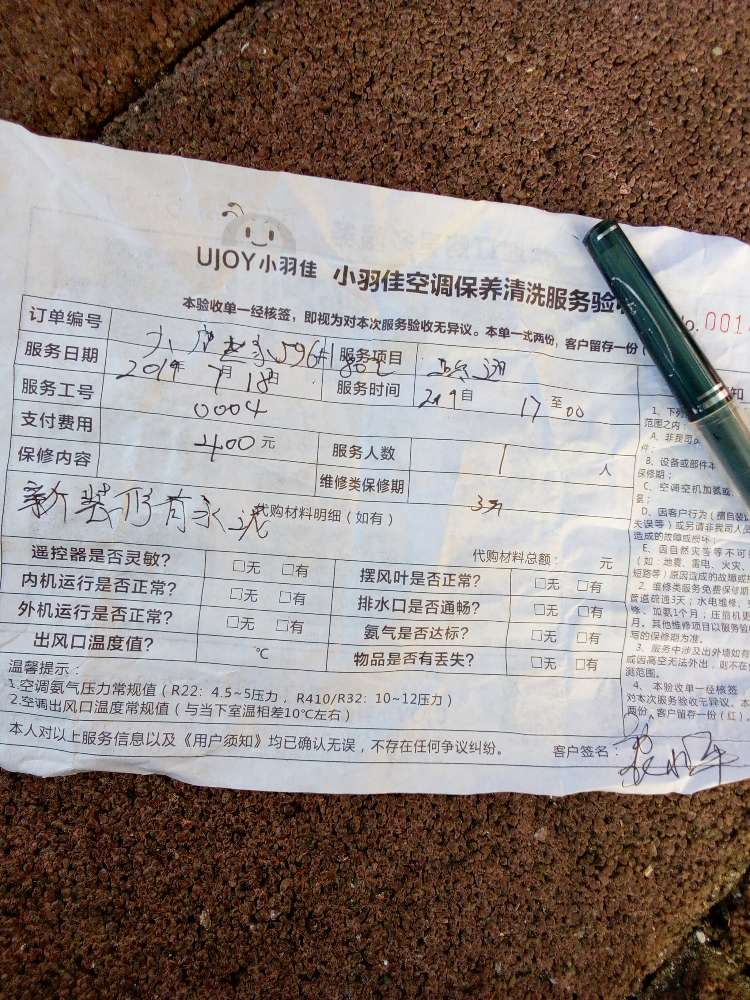 UJOY小羽佳 小羽佳空调保养清洗服务验
No. 001
本验收单一经核签，即视为对本次服务验收无异议。本单一式两份，客户留存一份（
订单编号 服务项目
服务日期 2019年 7月 18日 服务时间 日 17 至 00
服务工号 0004
支付费用 400 元 服务人数 1 人
保修内容 维修类保修期 3
新装 有 代购材料明细（如有）
代购材料总额： 元
遥控器是否灵敏？ □无 □有 摆风叶是否正常？ □无 □有
内机运行是否正常？ □无 □有 排水口是否通畅？ □无 □有
外机运行是否正常？ □无 □有 氨气是否达标？ □无 □有
出风口温度值？ ℃ 物品是否有丢失？ □无 □有
温馨提示：
1.空调氨气压力常规值（R22：4.5~5压力，R410/R32：10~12压力）
2.空调出风口温度常规值（与当下室温相差10℃左右）
本人对以上服务信息以及《用户须知》均已确认无误，不存在任何争议纠纷。 客户签名：
知
1、下
范围之内：
A、非我司
件；
B、设备或部件本
保修期；
C、空调空机加氨或
氨；
D、因客户行为（擅自装
天误等）或另请非我司人员
造成的故障或损坏；
E、因自然灾害等不可
（如：地震、雷电、火灾、
短路等）原因造成的故障或
2、维修类服务免费保修期
管道疏通3天；水电维修、
修、加氨1个月；压缩机更
月。其他维修项目以服务验
写的保修期为准。
3、服务中涉及出外墙如有
或因高空无法外出，则不在
测范围。
4、本验收单一经核签
对本次服务验收无异议。本
两份，客户留存一份（红）